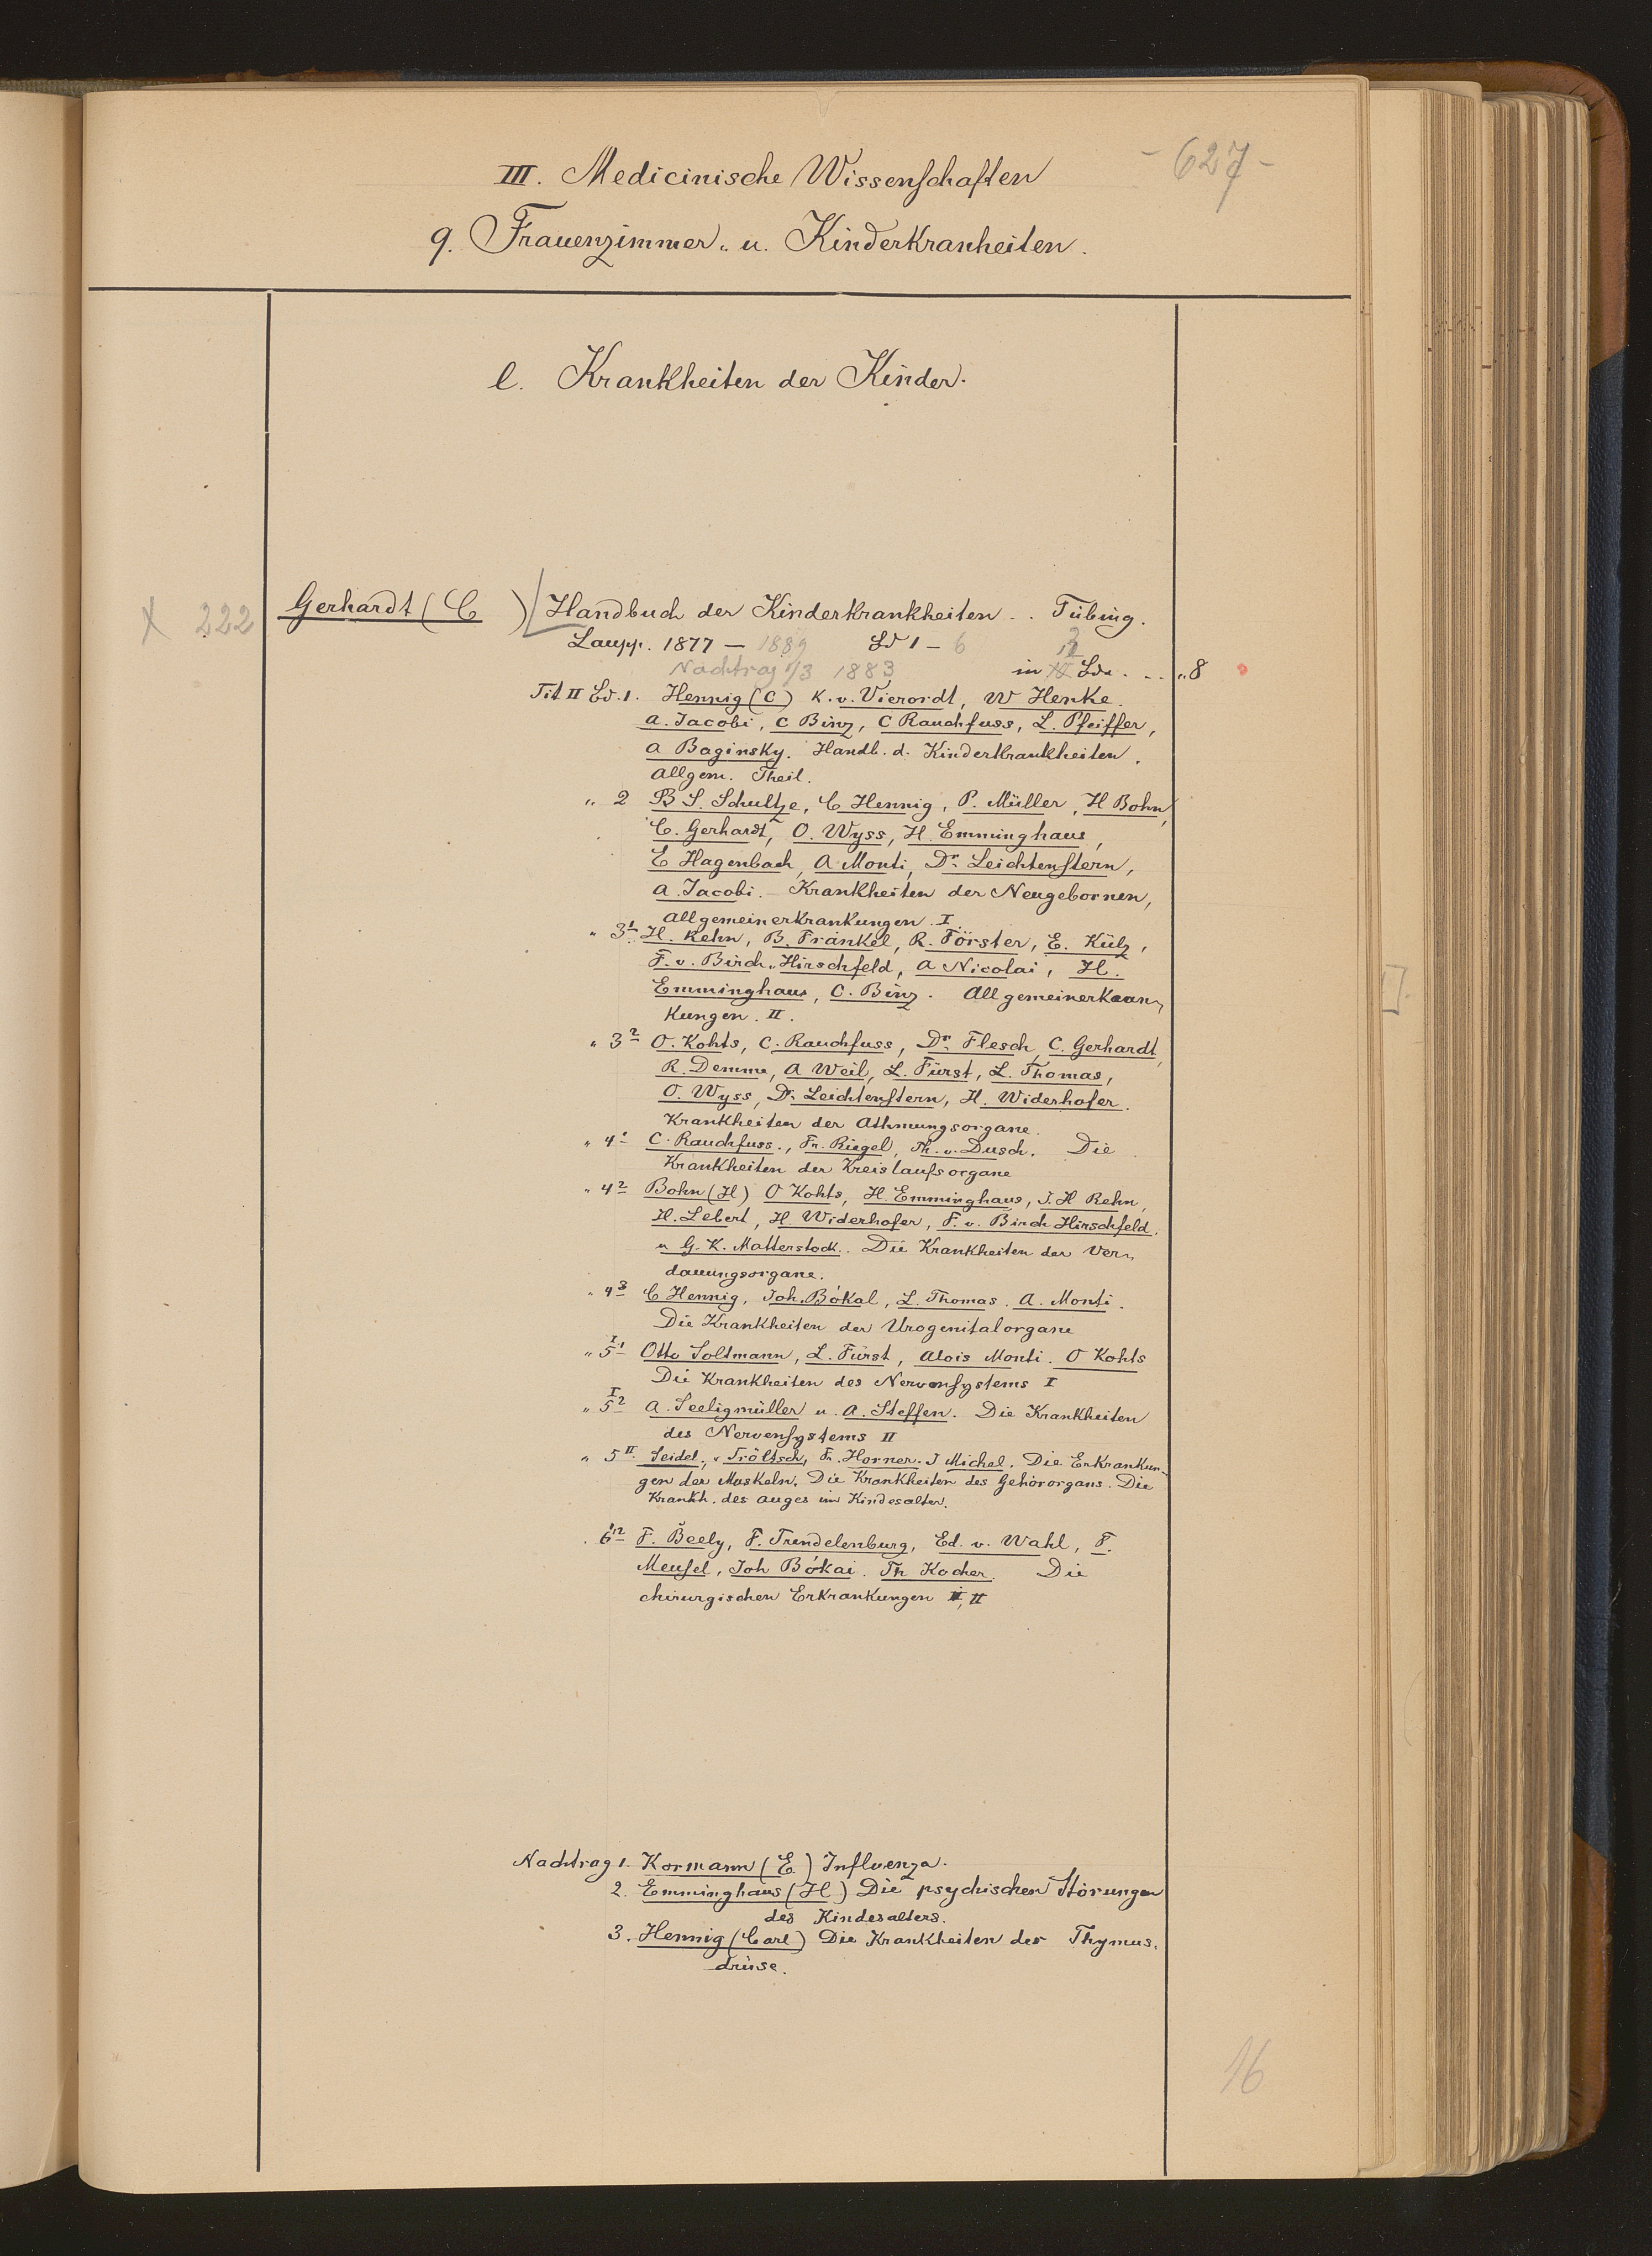 - 627 -
III. Medicinische Wissenschaften
q. Frauenzimmer- u. Kinderkranheiten.
l. Krankheiten der Kinder.
X 222 Gerhardt (C ) Handbuch der Kinderkrankheiten .. Tübing.
Laupp. 1877 — 1889 Bd 1 — 6
Nachtrag 1/3 1883 in Bde. . . „8
Tit II Bd. 1. Hennig (C) K. v. Vierordt, W Henke.
A. Jacobi, C Binz, C Rauchfuss, L. Pfeiffer,
A Baginsky. Handb. d. Kinderkrankheiten.
Allgem. Theil.
„ 2 B S. Schultze, C Hennig, P. Müller, H Bohn,
C. Gerhardt, O. Wyss, H. Emminghaus,
E Hagenbach, A Monti, Dr. Leichtenstern,
A. Jacobi. Krankheiten der Neugebornen,
Allgemeinerkrankungen. I
„ 3 1 H. Rehn, B. Fränkel, R. Förster, E. Külz,
F. v. Birch-Hirschfeld, A Nicolai, H.
Emminghaus, C. Binz. Allgemeinerkran-
kungen. II.
„ 3 2 O. Kohts, C. Rauchfuss, Dr. Flesch, C. Gerhardt,
R. Demme, A Weil, L. Fürst, L. Thomas,
O. Wyss, Dr. Leichtenstern, H. Widerhofer.
Krankheiten der Athmungsorgane.
„ 4 1 C. Rauchfuss., Fr. Riegel, Th. v. Dusch. Die
Krankheiten der Kreislaufsorgane
„ 4 2 Bohn (H) O Kohts, H. Emminghaus, J. H Rehn,
H. Lebert, H. Widerhofer, F. v. Birch Hirschfeld.
u G. K. Matterstock. Die Krankheiten der Ver-
dauungsorgane.
„ 4 3 C Hennig, Joh. Bókal, L. Thomas. A. Monti.
Die Krankheiten der Urogenitalorgane
„ 5 I 1 Otto Soltmann, L. Fürst, Alois Monti. O Kohts
Die Krankheiten des Nervensystems I
„ 5 I 2 A. Seeligmüller u. A. Steffen. Die Krankheiten
des Nervensystems II
„ 5 II. Seidel, v Tröltsch, Fr. Horner. J Michel. Die Erkrankun-
gen der Muskeln. Die Krankheiten des Gehörorgans. Die
Krankh. des Auges im Kindesalter.
. 6 1 2 F. Beely, F. Trendelenburg, Ed. v. Wahl, F.
Meusel, Joh Bókai. Th Kocher. Die
chirurgischen Erkrankungen I, II
Nachtrag 1. Kormann (E.) Influenza.
2. Emminghaus (H) Die psychischen Störungen
des Kindesalters.
3. Hennig (Carl) Die Krankheiten der Thymus-
drüse.
16